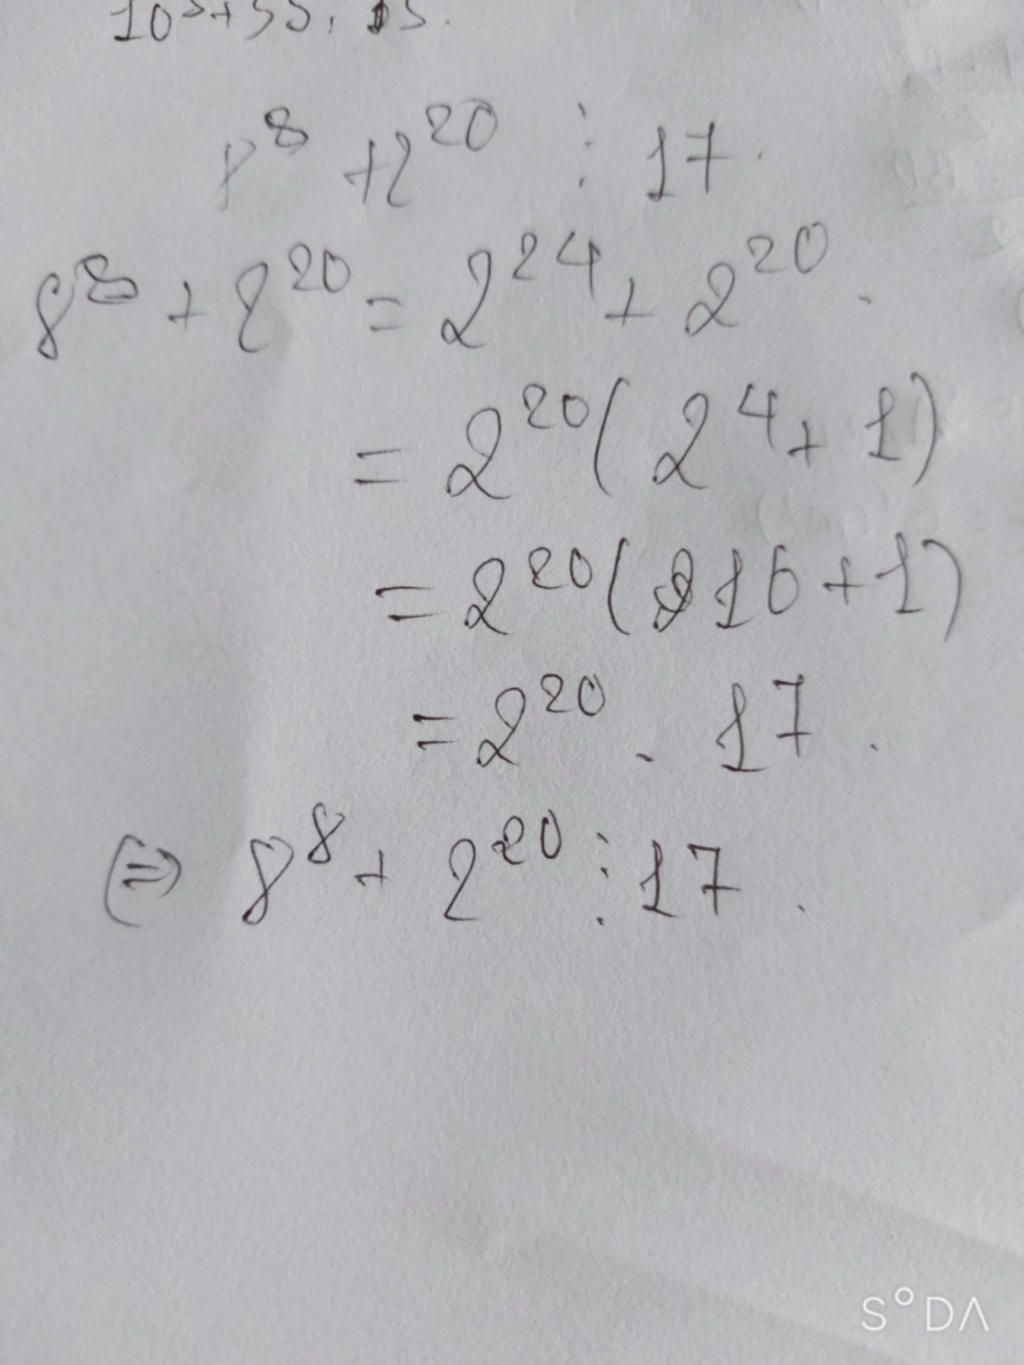 8⁸ + 2²⁰ ⋮ 17.
8⁸ + 2²⁰ = 2²⁴ + 2²⁰.
= 2²⁰(2⁴ + 1)
= 2²⁰(16 + 1)
= 2²⁰ . 17.
⇒ 8⁸ + 2²⁰ ⋮ 17.
S°DA